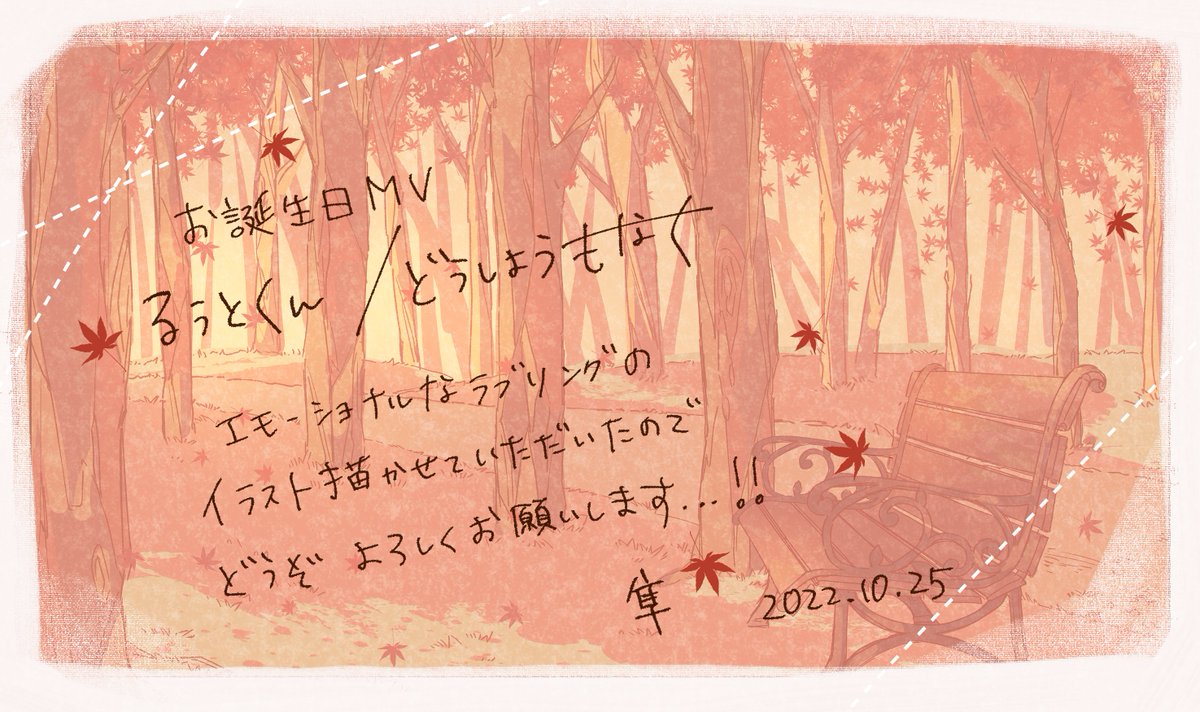 お誕生日MV
るぅとくん/どうしようもなく
エモーショナルなラブソングの
イラスト描かせていただいたので
どうぞ よろしくお願いします...!!
隼 2022.10.25